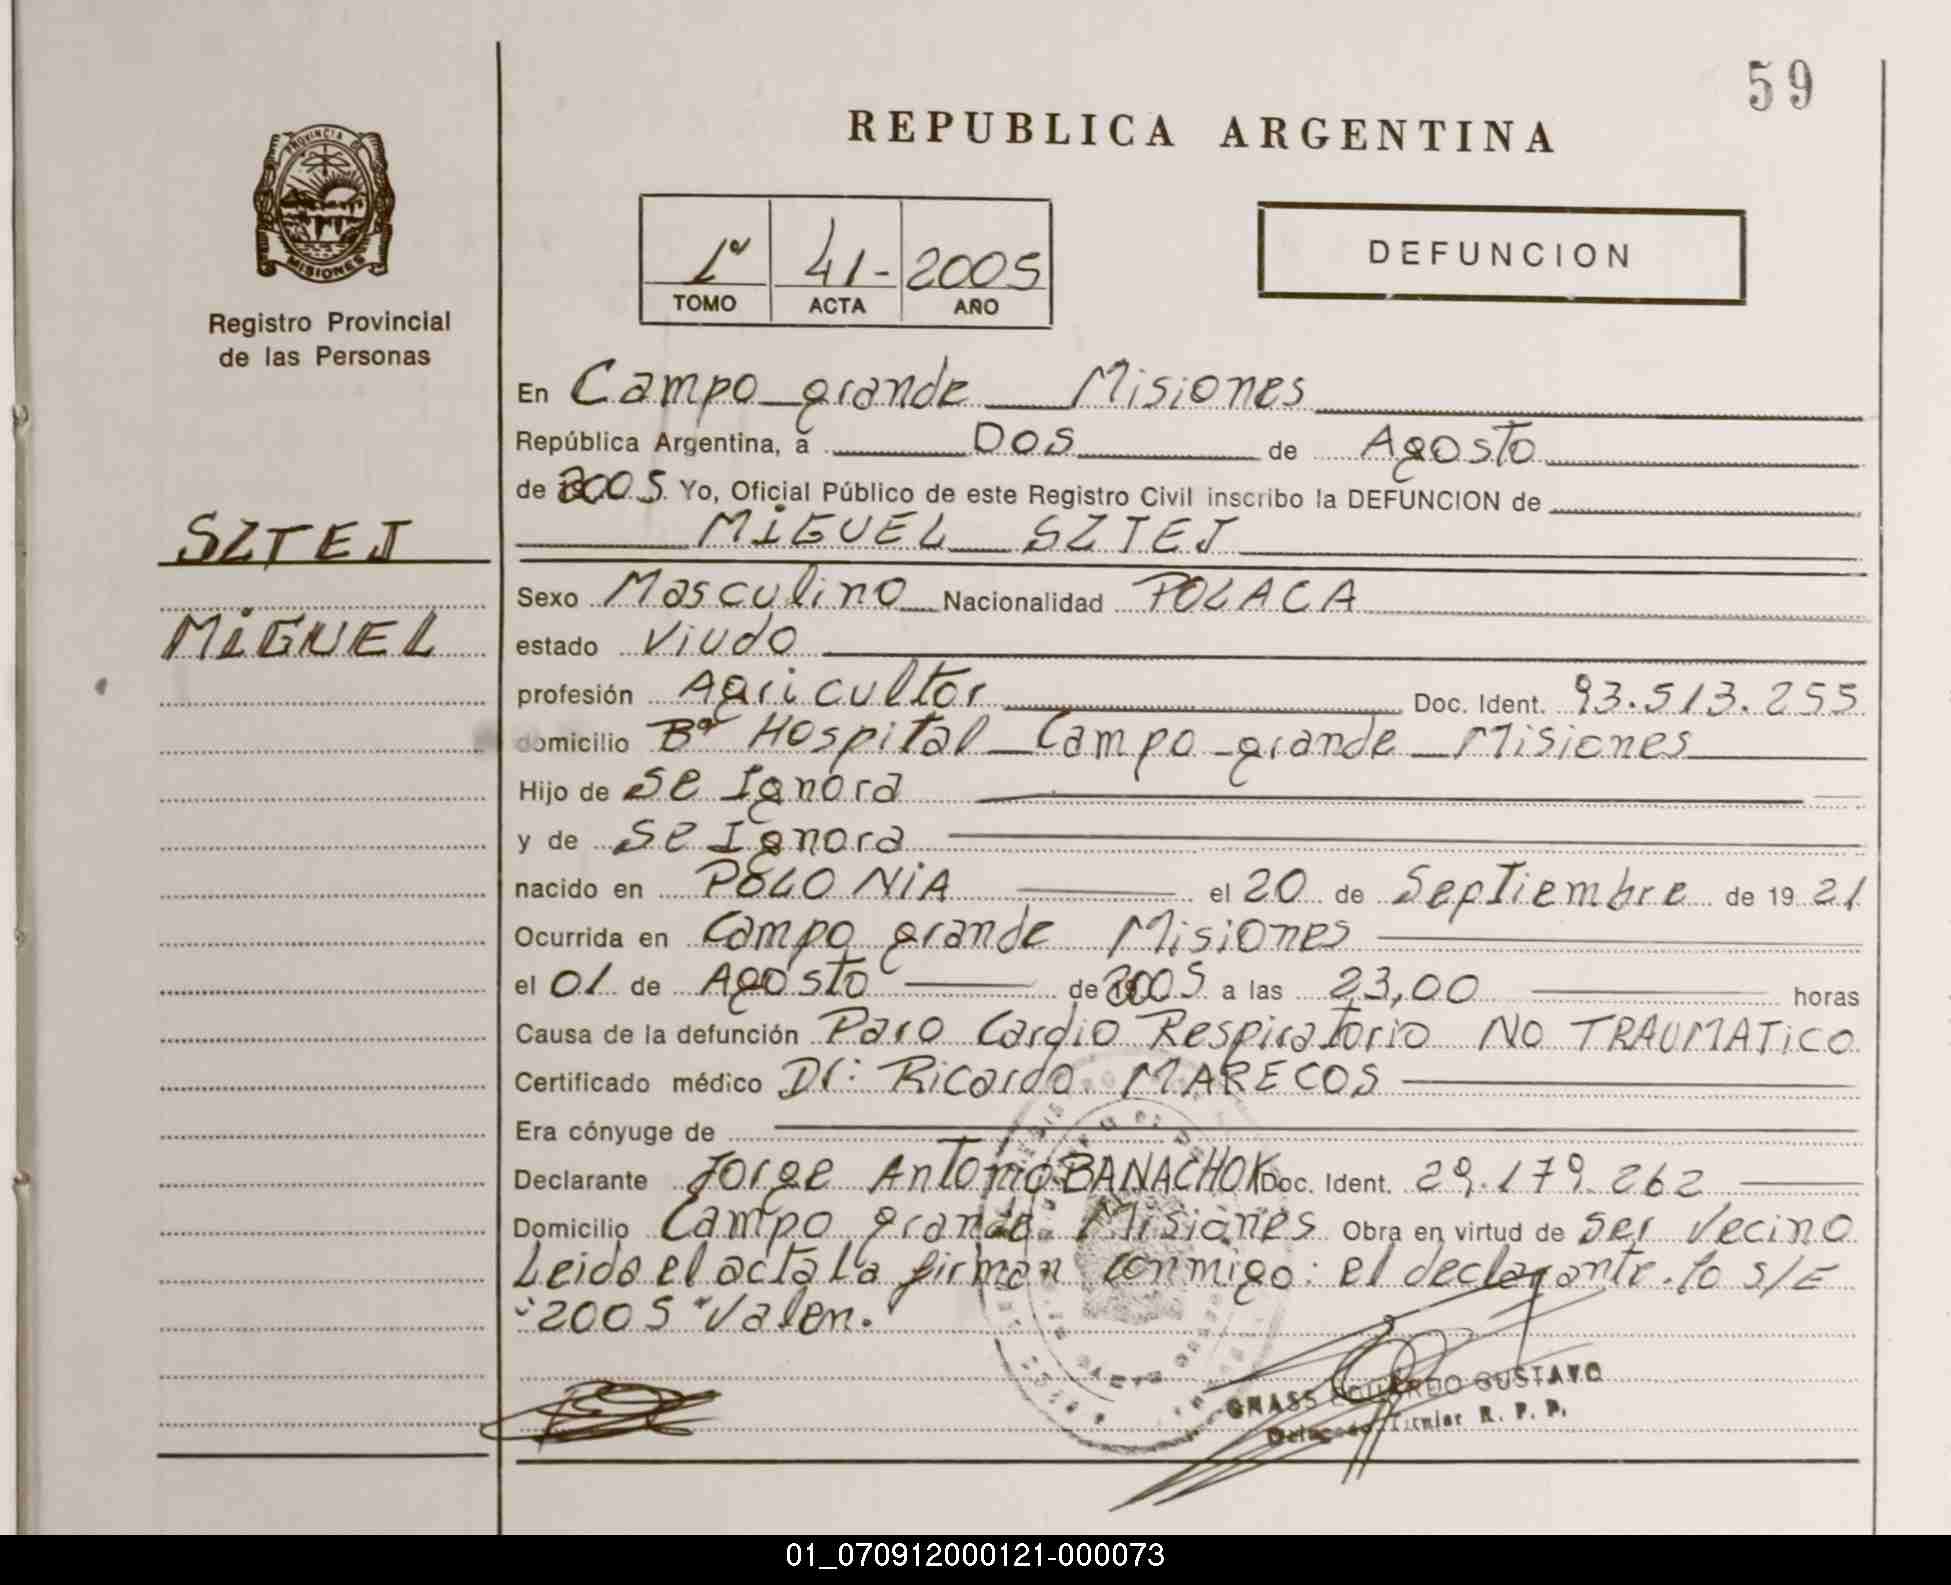 59
REPUBLICA ARGENTINA
PROVINCIA DE
MISIONES
Registro Provincial
de las Personas
1º 41- 2005
TOMO ACTA AÑO
DEFUNCION
SZTEJ
MiGUEL
En Campo grande Misiones
República Argentina, a DOS de Agosto
de 2005. Yo, Oficial Público de este Registro Civil inscribo la DEFUNCION de
MiGUEL SZTEJ
Sexo Masculino Nacionalidad POLACA
estado Viudo
profesión Agricultor Doc. Ident. 93.513.255
domicilio Bº Hospital Campo grande Misiones
Hijo de Se Ignora
y de Se Ignora
nacido en POLONiA el 20 de Septiembre de 19 21
Ocurrida en Campo grande Misiones
el 01 de Agosto de 2005 a las 23,00 horas
Causa de la defunción Paro Cardio Respiratorio NO TRAUMATiCO
Certificado médico Dr: Ricardo MARECOS
Era cónyuge de
Declarante Jorge Antonio BANACHOK Doc. Ident. 29.179.262
Domicilio Campo grande Misiones Obra en virtud de Ser Vecino
Leido el acta la firman conmigo: el declarante. lo s/E
"2005" Valen.
GNASS EDUARDO GUSTAVO
Delegado Titular R. P. P.
01_070912000121-000073